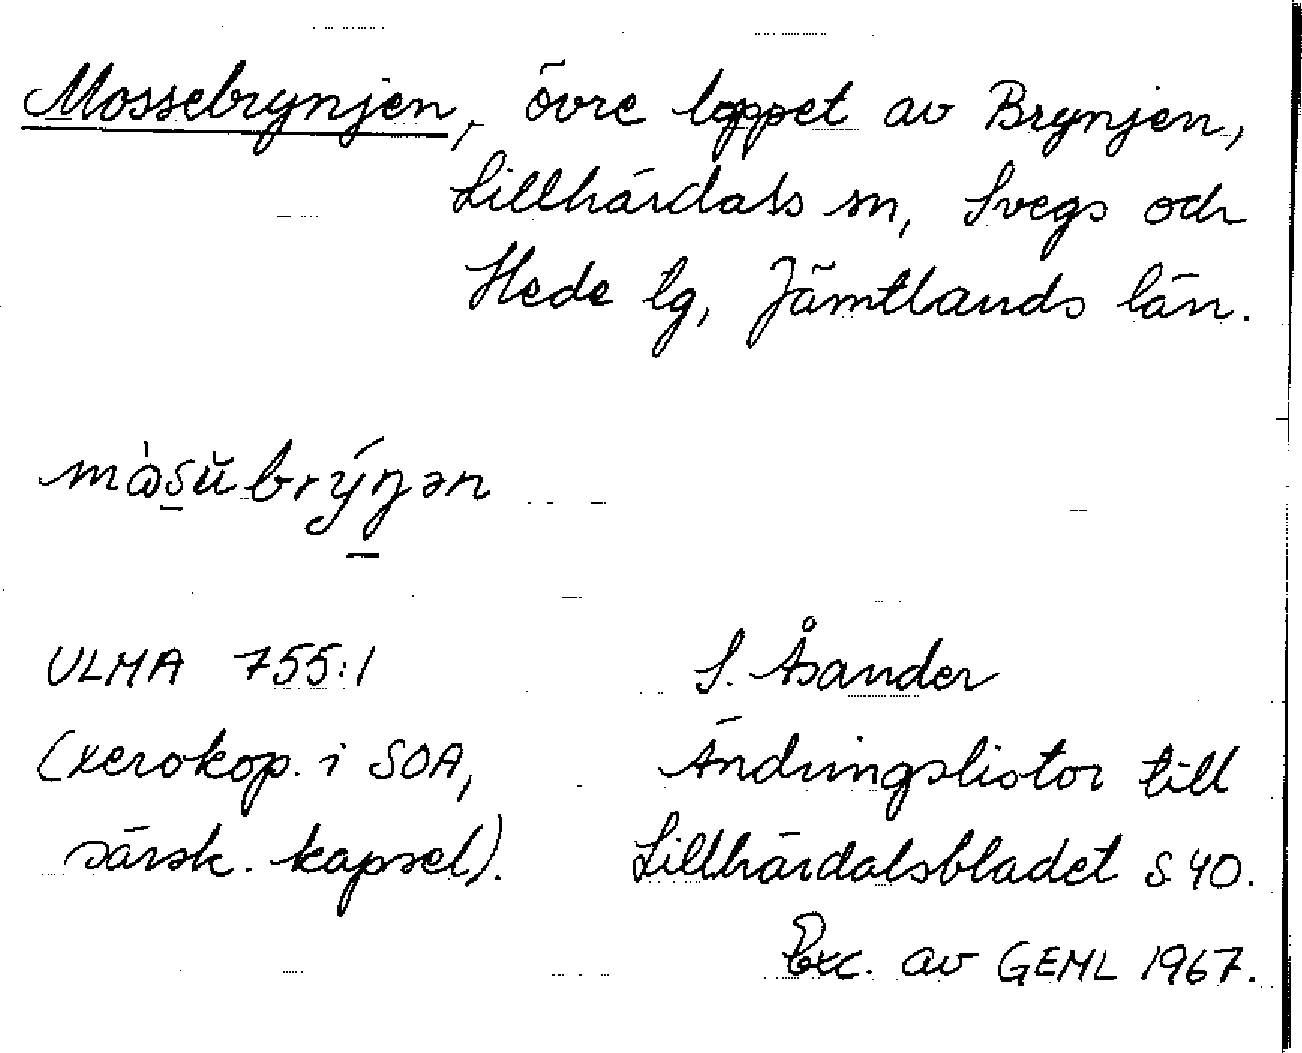 Mossebrynjen, övre loppet av Brynjen,
Lillhärdals sn, Svegs och
Hede lg, Jämtlands län.
ULMA 755:1
(xerokop. i SOA,
särsk. kapsel).
S. Åsander
Ändringslistor till
Lillhärdalsbladet S 40.
Exc. av GEML 1967.